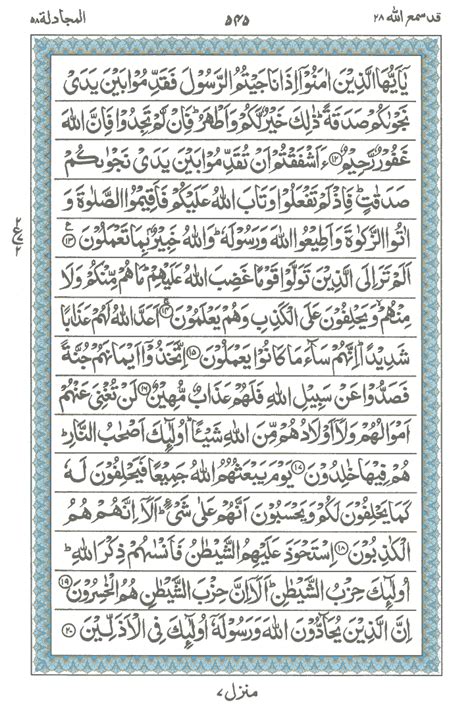 قد سمع الله ٢٨ ۵۴۵ المجادلة ۵۸
يٰۤاَيُّهَا الَّذِيْنَ اٰمَنُوْۤا اِذَا نَاجَيْتُمُ الرَّسُوْلَ فَقَدِّمُوْا بَيْنَ يَدَىْ
نَجْوٰىكُمْ صَدَقَةً ؕ ذٰلِكَ خَيْرٌ لَّكُمْ وَاَطْهَرُ ؕ فَاِنْ لَّمْ تَجِدُوْا فَاِنَّ اللّٰهَ
غَفُوْرٌ رَّحِيْمٌ ۝۱۲ ءَاَشْفَقْتُمْ اَنْ تُقَدِّمُوْا بَيْنَ يَدَىْ نَجْوٰىكُمْ
صَدَقٰتٍ ؕ فَاِذْ لَمْ تَفْعَلُوْا وَتَابَ اللّٰهُ عَلَيْكُمْ فَاَقِيْمُوا الصَّلٰوةَ وَ
اٰتُوا الزَّكٰوةَ وَاَطِيْعُوا اللّٰهَ وَرَسُوْلَهٗ ؕ وَاللّٰهُ خَبِيْرٌۢ بِمَا تَعْمَلُوْنَ ۝۱۳
اَلَمْ تَرَ اِلَى الَّذِيْنَ تَوَلَّوْا قَوْمًا غَضِبَ اللّٰهُ عَلَيْهِمْ ؕ مَا هُمْ مِّنْكُمْ وَلَا
مِنْهُمْ ۙ وَيَحْلِفُوْنَ عَلَى الْكَذِبِ وَهُمْ يَعْلَمُوْنَ ۝۱۴ اَعَدَّ اللّٰهُ لَهُمْ عَذَابًا
شَدِيْدًا ؕ اِنَّهُمْ سَآءَ مَا كَانُوْا يَعْمَلُوْنَ ۝۱۵ اِتَّخَذُوْۤا اَيْمَانَهُمْ جُنَّةً
فَصَدُّوْا عَنْ سَبِيْلِ اللّٰهِ فَلَهُمْ عَذَابٌ مُّهِيْنٌ ۝۱۶ لَنْ تُغْنِىَ عَنْهُمْ
اَمْوَالُهُمْ وَلَاۤ اَوْلَادُهُمْ مِّنَ اللّٰهِ شَيْئًا ؕ اُولٰٓئِكَ اَصْحٰبُ النَّارِ ؕ
هُمْ فِيْهَا خٰلِدُوْنَ ۝۱۷ يَوْمَ يَبْعَثُهُمُ اللّٰهُ جَمِيْعًا فَيَحْلِفُوْنَ لَهٗ
كَمَا يَحْلِفُوْنَ لَكُمْ وَيَحْسَبُوْنَ اَنَّهُمْ عَلٰى شَىْءٍ ؕ اَلَاۤ اِنَّهُمْ هُمُ
الْكٰذِبُوْنَ ۝۱۸ اِسْتَحْوَذَ عَلَيْهِمُ الشَّيْطٰنُ فَاَنْسٰىهُمْ ذِكْرَ اللّٰهِ ؕ
اُولٰٓئِكَ حِزْبُ الشَّيْطٰنِ ؕ اَلَاۤ اِنَّ حِزْبَ الشَّيْطٰنِ هُمُ الْخٰسِرُوْنَ ۝۱۹
اِنَّ الَّذِيْنَ يُحَآدُّوْنَ اللّٰهَ وَرَسُوْلَهٗۤ اُولٰٓئِكَ فِى الْاَذَلِّيْنَ ۝۲۰
منزل ٧